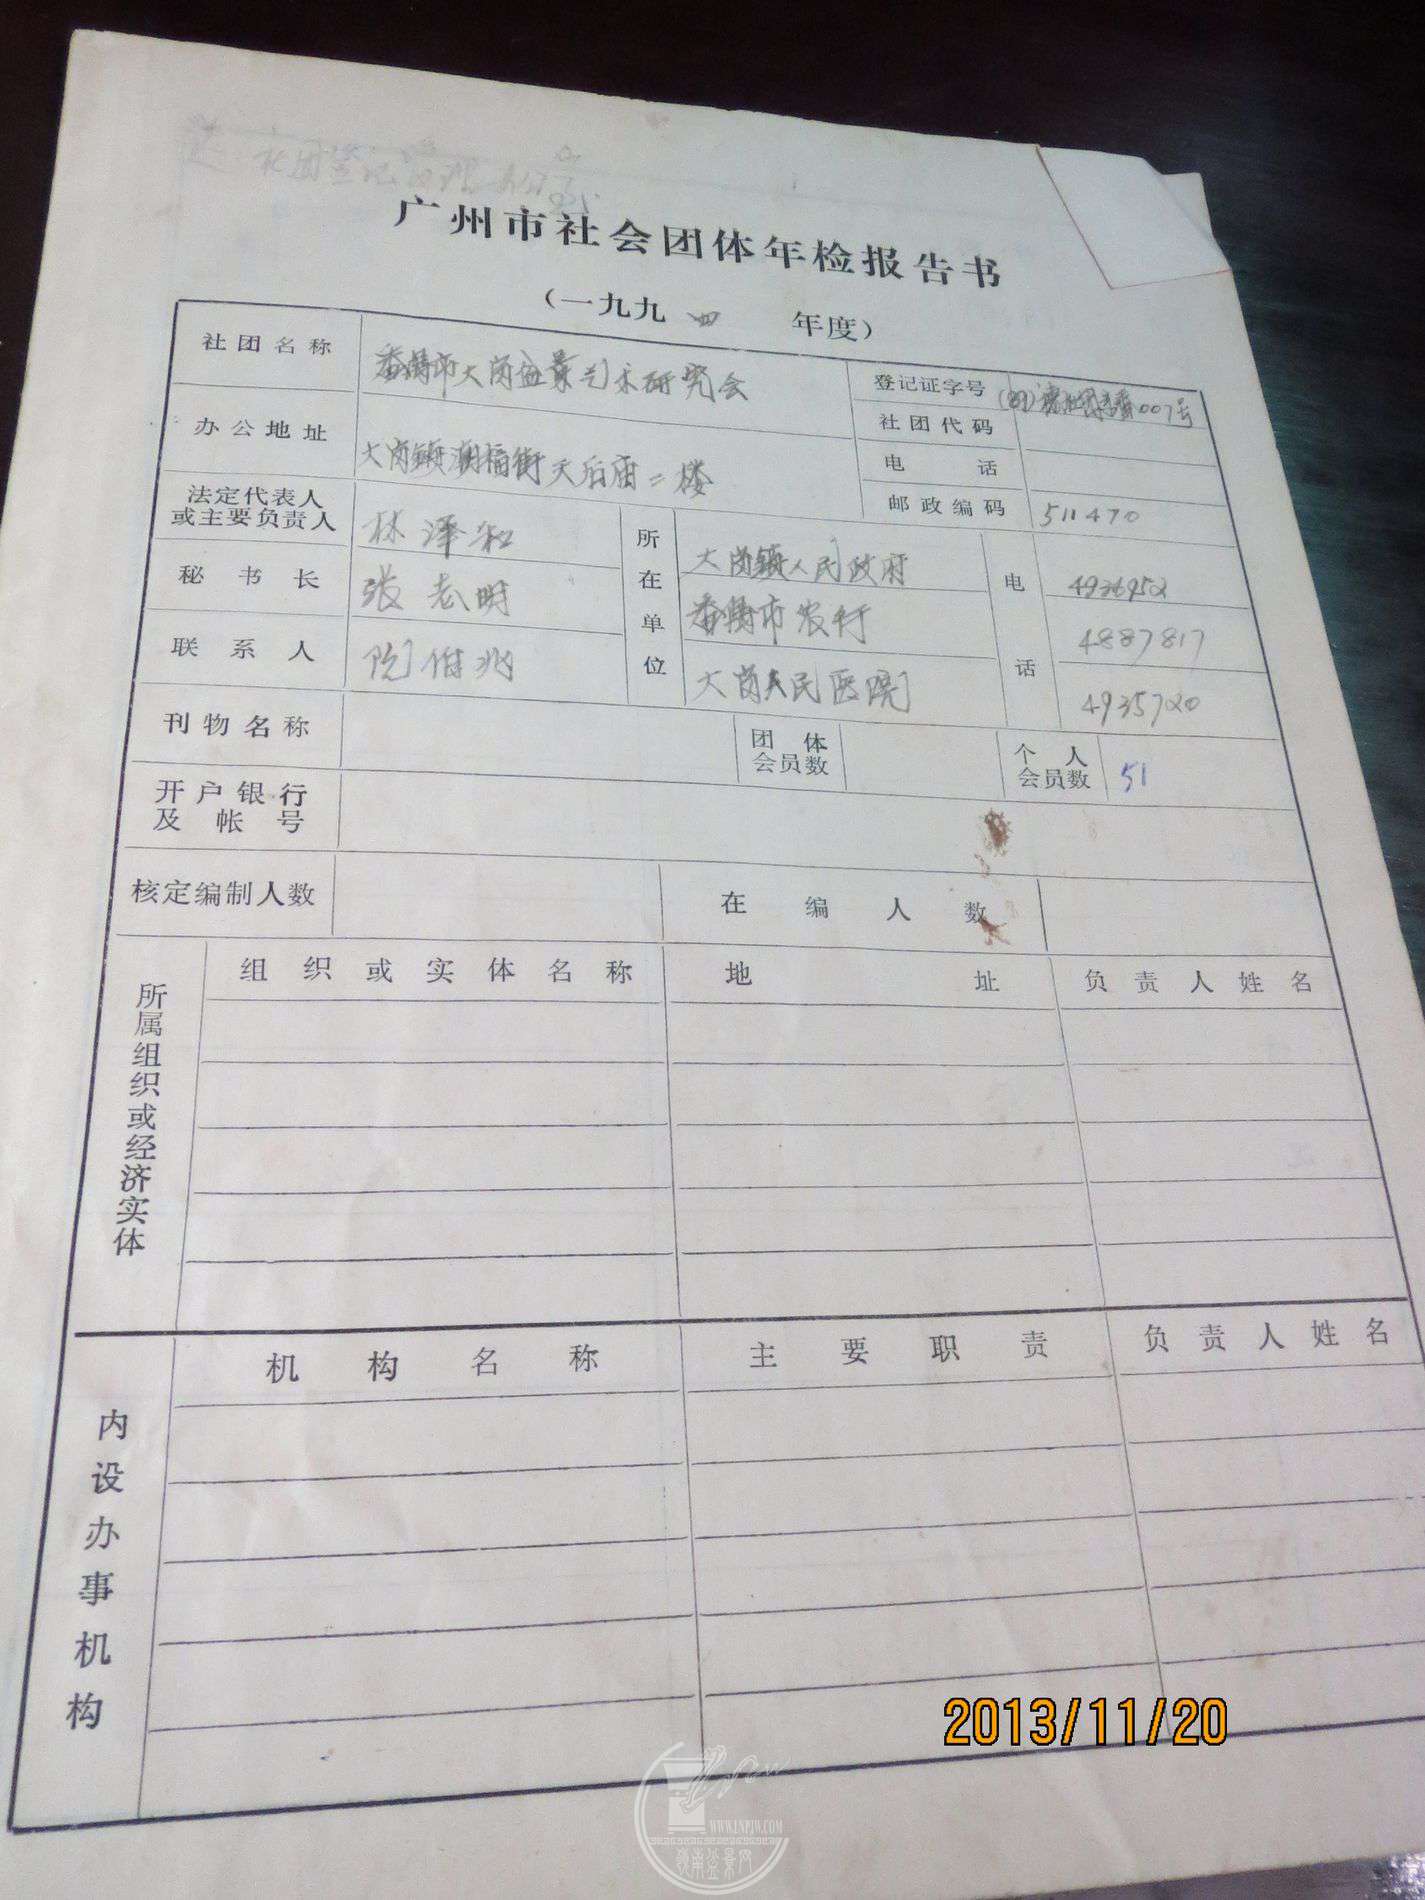 送:社团登记管理
广州市社会团体年检报告书
(一九九四 年度)
社团名称 番禺市大岗盆景艺术研究会 登记证字号 007号
社团代码
办公地址 大岗镇潮福街天后庙二楼 电话
邮政编码 511470
法定代表人
或主要负责人 林泽和 所在单位 大岗镇人民政府 电话 4936952
秘书长 张志明 番禺市农行 4887817
联系人 阮伯兆 大岗人民医院 4935720
刊物名称 团体会员数 个人会员数 51
开户银行
及帐号
核定编制人数 在编人数
所属组织或经济实体 组织或实体名称 地址 负责人姓名
内设办事机构 机构名称 主要职责 负责人姓名
2013/11/20
WWW.LNPJW.COM
岭南盆景网